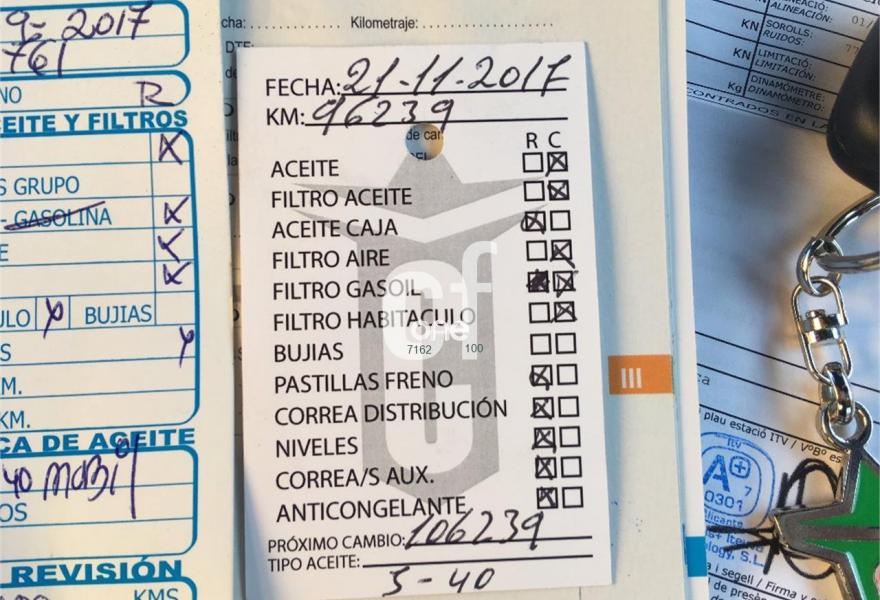 9-2017
761
NO R
CEITE Y FILTROS
S GRUPO
- GASOLINA
E
ULO BUJIAS
S
KM.
KM.
CA DE ACEITE
40 MOBil
OS
REVISIÓN
KMS
cha: Kilometraje:
DTE:
de
FECHA: 21-11-2017
KM: 96239
de car
R C
ACEITE
FILTRO ACEITE
ACEITE CAJA
FILTRO AIRE
FILTRO GASOIL
FILTRO HABITACULO
BUJIAS
PASTILLAS FRENO
CORREA DISTRIBUCIÓN
NIVELES
CORREA/S AUX.
ANTICONGELANTE
PRÓXIMO CAMBIO: 106239
TIPO ACEITE:
5-40
Gf
OHe
7162 100
III
ALINEACIÓN:
KN SOROLLS
RUIDOS:
KN LIMITACIÓ:
LIMITACIÓN:
Kg DINAMÒMETRE:
DINAMÓMETRO:
CONTRADOS EN LA
ca
plau estació ITV / VºBº es
Itv
A+
7
0301
licante
ology, S.L.
i segell / Firma y
de presè